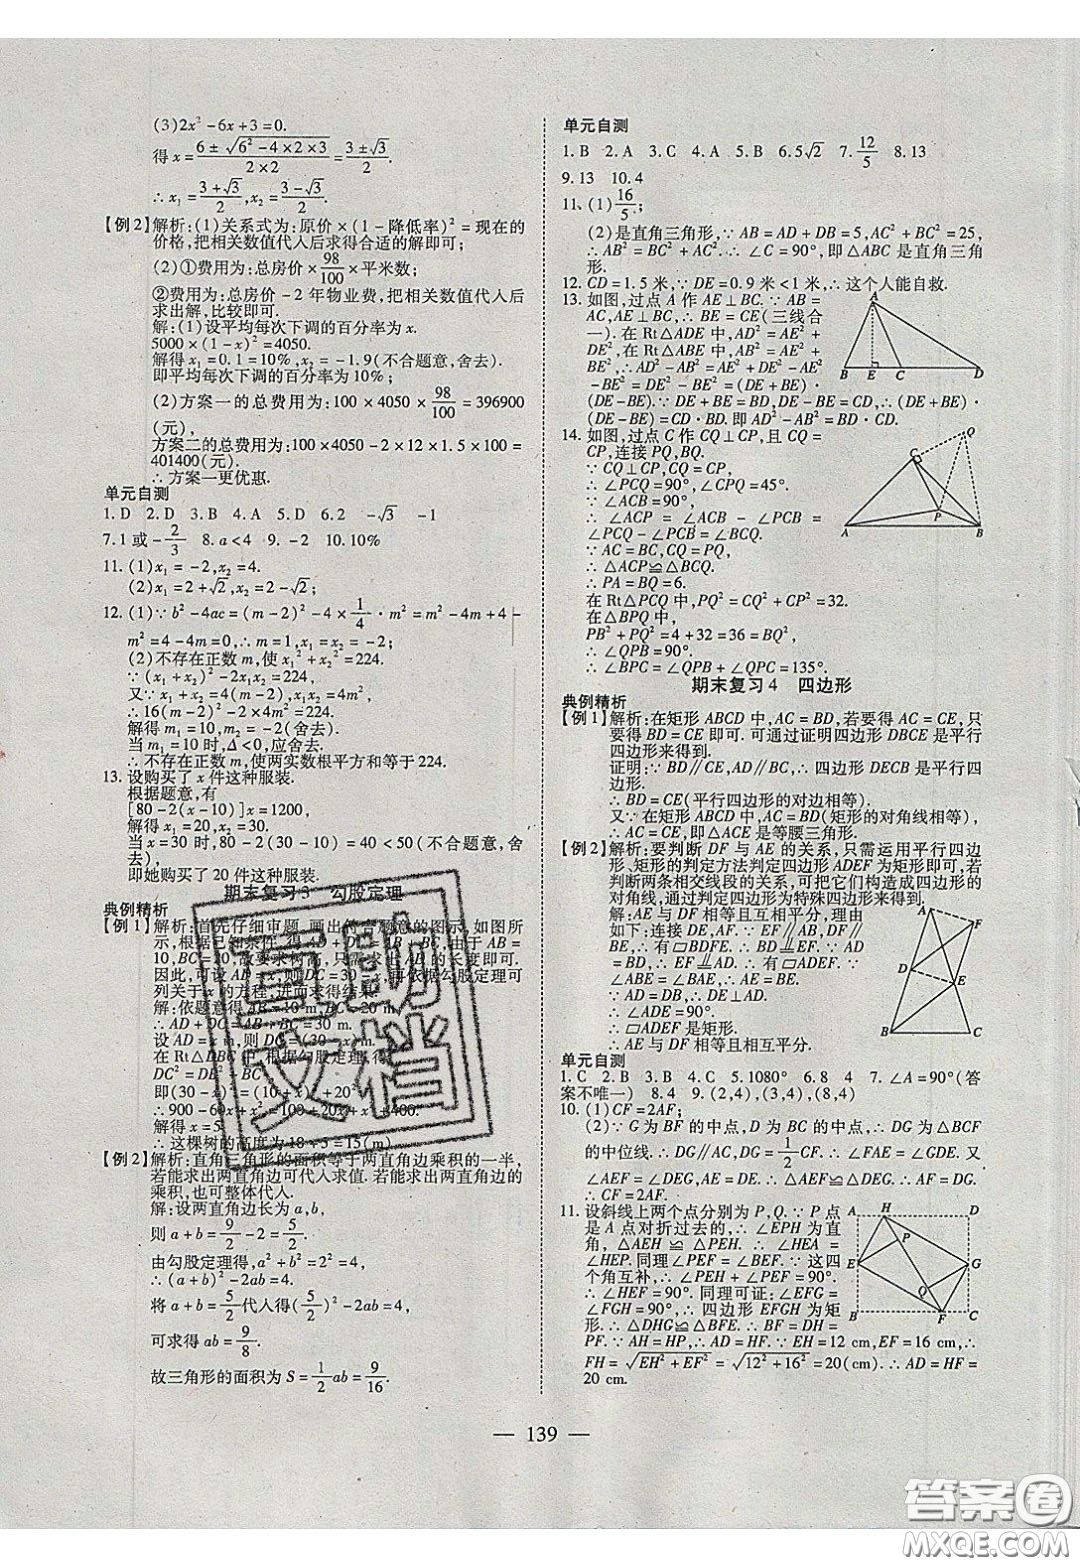 (3)2x²-6x+3=0.
得 x=\frac{6±\sqrt{6²-4×2×3}}{2×2}=\frac{3±\sqrt{3}}{2}.
∴x₁=\frac{3+\sqrt{3}}{2},x₂=\frac{3-\sqrt{3}}{2}.
【例2】解析:(1)关系式为:原价×(1-降低率)²=现在的
价格,把相关数值代入后求得合适的解即可;
(2)①费用为:总房价×\frac{98}{100}×平米数;
②费用为:总房价-2年物业费,把相关数值代入后
求出解,比较即可.
解:(1)设平均每次下调的百分率为 x.
5000×(1-x)²=4050.
解得 x₁=0.1=10%,x₂=-1.9(不合题意,舍去).
即平均每次下调的百分率为10%;
(2)方案一的总费用为:100×4050×\frac{98}{100}=396900
(元),
方案二的总费用为:100×4050-2×12×1.5×100=
401400(元).
∴方案一更优惠.
单元自测
1.D 2.D 3.B 4.A 5.D 6.2 -√3 -1
7.1或-\frac{2}{3} 8.a<4 9.-2 10.10%
11.(1)x₁=-2,x₂=4.
(2)x₁=2+√2,x₂=2-√2;
12.(1)∵b²-4ac=(m-2)²-4×\frac{1}{4}·m²=m²-4m+4-
m²=4-4m=0,∴m=1,x₁=x₂=-2;
(2)不存在正数 m,使 x₁²+x₂²=224.
∵(x₁+x₂)²-2x₁x₂=224.
∴16(m-2)²-8m²=224.
解得 m₁=10,m₂=-2(舍去).
当 m₁=10时,Δ<0,应舍去.
∴不存在正数 m,使两实数根平方和等于224.
13.设购买了 x 件这种服装.
根据题意,有
[80-2(x-10)]x=1200,
解得 x₁=20,x₂=30.
当 x=30时,80-2(30-10)=40<50(不合题意,舍
去),
即她购买了20件这种服装.
期末复习3 勾股定理
典例精析
【例1】解析:首先仔细审题,画出符合题意的图示,如图所
示,根据已知条件,得 AD+DC=AB+BC,由于 AB=
10,BC=20,故要求树高,只需求出 AD 的长度即可.
因此,可设 AD=x,则 DC=30-x,再依据勾股定理可
列关于 x 的方程,进而求得结果.
解:依题意得 AB=10 m,BC=20 m.
∴AD+DC=AB+BC=30 m.
设 AD=x,则 DC=(30-x)m.
在 Rt△DBC 中,根据勾股定理,得
DC²=DB²+BC²,
即(30-x)²=(10+x)²+20².
∴900-60x+x²=100+20x+x²+400.
解得 x=5.
∴这棵树的高度为10+5=15(m).
【例2】解析:直角三角形的面积等于两直角边乘积的一半,
若能求出两直角边可代入求值.若能求出两直角边的
乘积,也可整体代人.
解:设两直角边长为 a,b,
则 a+b=\frac{9}{2}-2=\frac{5}{2},
由勾股定理得,a²+b²=2²=4,
∴(a+b)²-2ab=4,
将 a+b=\frac{5}{2}代人得(\frac{5}{2})²-2ab=4,
可求得 ab=\frac{9}{8}.
故三角形的面积为 S=\frac{1}{2}ab=\frac{9}{16}.
单元自测
1.B 2.A 3.C 4.A 5.B 6.5√2 7.\frac{12}{5} 8.13
9.13 10.4
11.(1)\frac{16}{5};
(2)是直角三角形,∵AB=AD+DB=5,AC²+BC²=25,
∴AB²=BC²+AC²,∴∠C=90°,即△ABC 是直角三角
形.
12.CD=1.5米,∵DE=0.9米<1米,∴这个人能自救.
13.如图,过点 A 作 AE⊥BC.∵AB=
AC,AE⊥BC,∴BE=CE(三线合
一).在 Rt△ADE 中,AD²=AE²+
DE²,在 Rt△ABE 中,AB²=AE²+
BE².∴AD²-AB²=AE²+DE²-AE²
-BE²=DE²-BE²=(DE+BE)·
(DE-BE).∵DE+BE=BD,DE-BE=CD,∴(DE+BE)
·(DE-BE)=CD·BD.即 AD²-AB²=BD·CD.
A
B E C D
14.如图,过点 C 作 CQ⊥CP,且 CQ=
CP,连接 PQ,BQ.
∵CQ⊥CP,CQ=CP,
∴∠PCQ=90°,∠CPQ=45°.
∵∠ACB=90°,
∴∠ACP=∠ACB-∠PCB=
∠PCQ-∠PCB=∠BCQ.
∵AC=BC,CQ=PC,
∴△ACP≌△BCQ.
∴PA=BQ=6.
在 Rt△PCQ 中,PQ²=CQ²+CP²=32.
在△BPQ 中,
PB²+PQ²=4+32=36=BQ²,
∴∠QPB=90°.
∴∠BPC=∠QPB+∠QPC=135°.
Q
C
P
A B
期末复习4 四边形
典例精析
【例1】解析:在矩形 ABCD 中,AC=BD,若要得 AC=CE,只
要得 BD=CE 即可.可通过证明四边形 DBCE 是平行
四边形来得到.
证明:∵BD∥CE,AD∥BC,∴四边形 DECB 是平行四
边形.
∴BD=CE(平行四边形的对边相等).
又∵在矩形 ABCD 中,AC=BD(矩形的对角线相等),
∴AC=CE,即△ACE 是等腰三角形.
【例2】解析:要判断 DF 与 AE 的关系,只需运用平行四边
形、矩形的判定方法判定四边形 ADEF 为矩形即可.若
判断两条相交线段的关系,可把它们构造成四边形的
对角线,通过判定四边形为特殊四边形来得到.
解:AE 与 DF 相等且互相平分,理由
如下:连接 DE,AF.
∵EF∥BD,EF=BD,
∴有▱BDFE.∴BE∥DF.
又∵EF∥AD,∴有▱ADEF.
∵AB=BC,AD=BD,
∴BD=BE.∴DF=DE.
又∵BE∥DF,∴DE⊥AD.
∴∠ADE=90°.
∴▱ADEF 是矩形.
∴AE 与 DF 相等且相互平分.
A
F
D
E
B C
单元自测
1.C 2.B 3.B 4.C 5.1080° 6.8 4 7.∠A=90°(答
案不唯一) 8.4 9.(2,4),(3,4),(8,4)
10.(1)CF=2AF;
(2)∵G 为 BF 的中点,D 为 BC 的中点,∴DG 为△BCF
的中位线.∴DG∥AC,DG=\frac{1}{2}CF.∴∠FAE=∠GDE.又∵
∠AEF=∠DEG,AE=DE.∴△AEF≌△DEG.∴AF=DG.
∴CF=2AF.
11.设斜线上两个点分别为 P,Q.∵P 点
是 A 点对折过去的,∴∠EPH 为直
角,△AEH≌△PEH.∴∠HEA=
∠HEP.同理∠PEF=∠BEF.∵这四
个角互补,∴∠PEH+∠PEF=90°.
∴∠HEF=90°.同理可证:∠EFG=
∠FGH=90°,∴四边形 EFGH 为矩
形.∴△DHG≌△BFE.∴BF=DH=
PF.∵AH=HP,∴AD=HF.∵EH=12 cm,EF=16 cm,∴
FH=\sqrt{EH²+EF²}=\sqrt{12²+16²}=20(cm).∴AD=HF=
20 cm.
A H D
P
E G
Q
B F C
— 139 —
直助
文档
答案卷
MXQE.COM